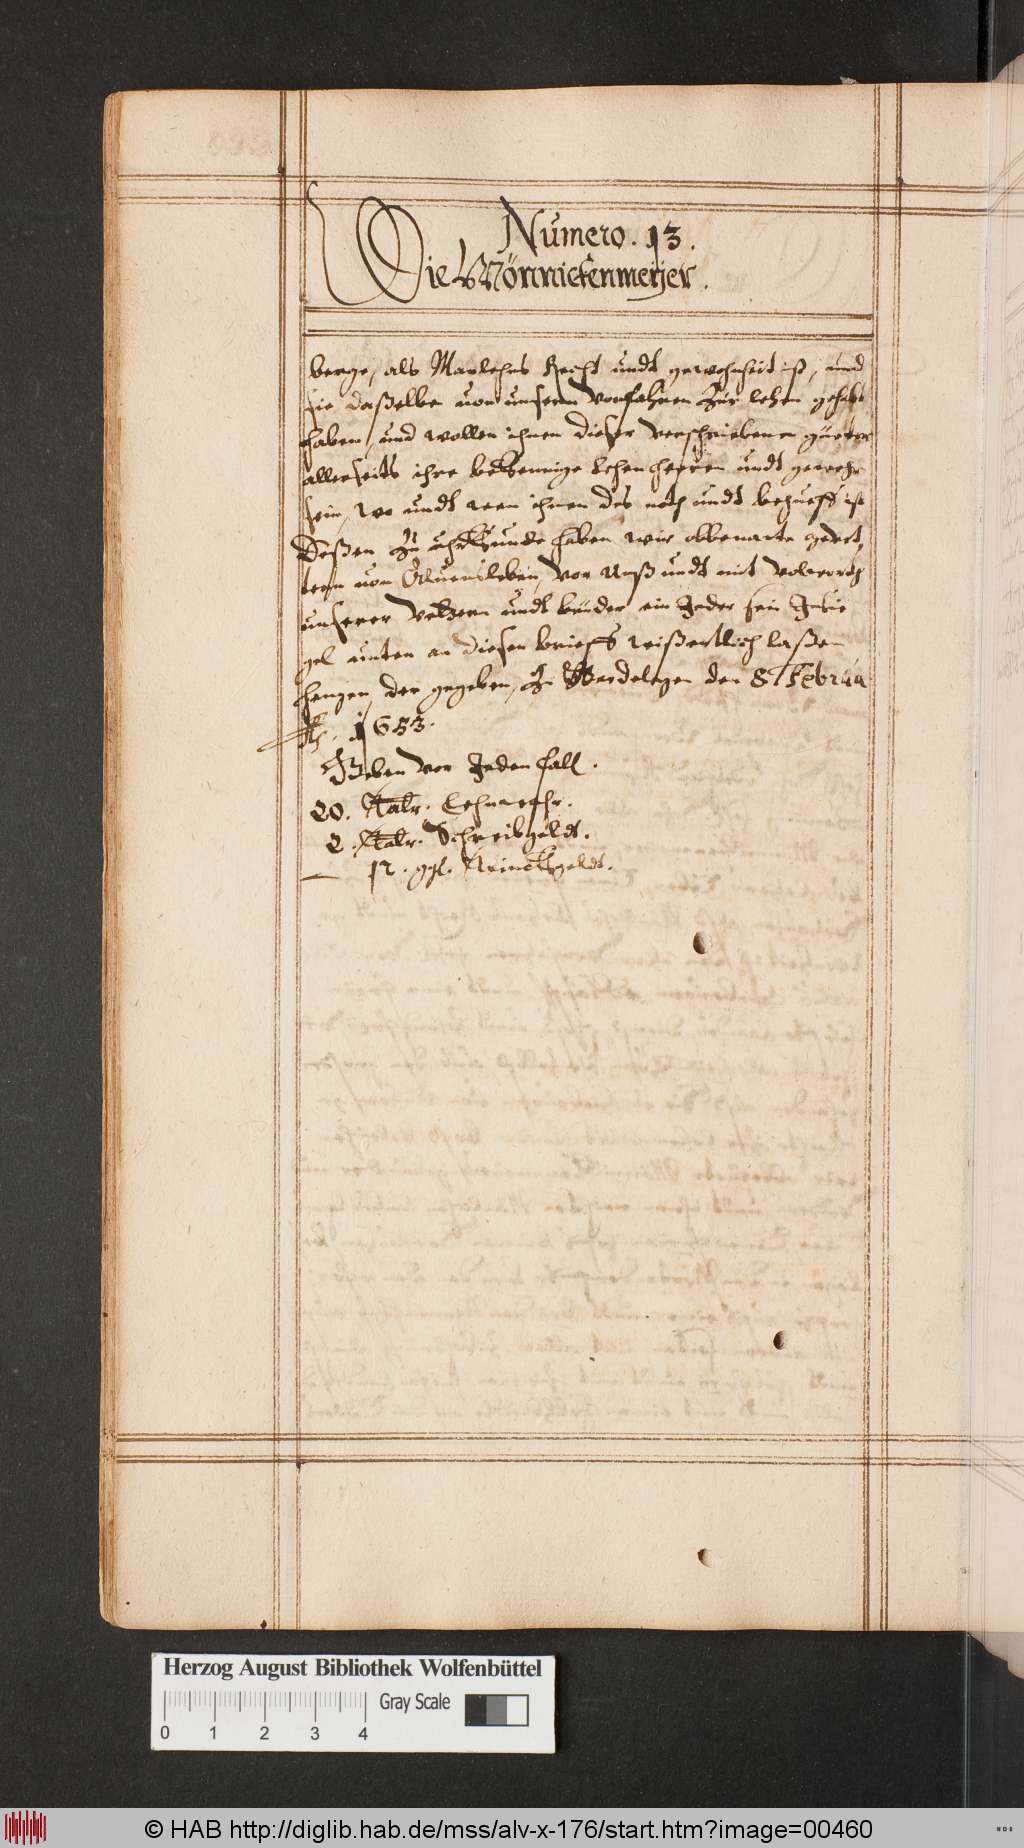 Numero. 13.
Die Mönnickenmeijer.
berge, als Manlehns Recht undt gewohnheit ist, und
sie daßelbe von unsern Vorfahren Zur lehen gehabt
haben, und wollen ihnen dieser verschriebenen güeter
allerseits ihre bekennige lehenherren undt gewehr
sein, wo undt wen ihnen des noth undt behueff ist
Deßen Zu uhrkunde haben wir obbenante gevet,
tern von Alvensleben, vor Unß undt mit volwordt
unserer Vettern undt brüder ein Jeder sein Insie
gel unten an diesen brieff wißentlich laßen
hangen, der gegeben, Zu den 8 Februa
Ao. 1653.
Geben vor Jeden fall.
20. Thalr. Lehnwahr.
2. Thalr. Schreibgeldt.
12. ggl. Trinckgeldt.
Herzog August Bibliothek Wolfenbüttel
Gray Scale
0 1 2 3 4
© HAB http://diglib.hab.de/mss/alv-x-176/start.htm?image=00460